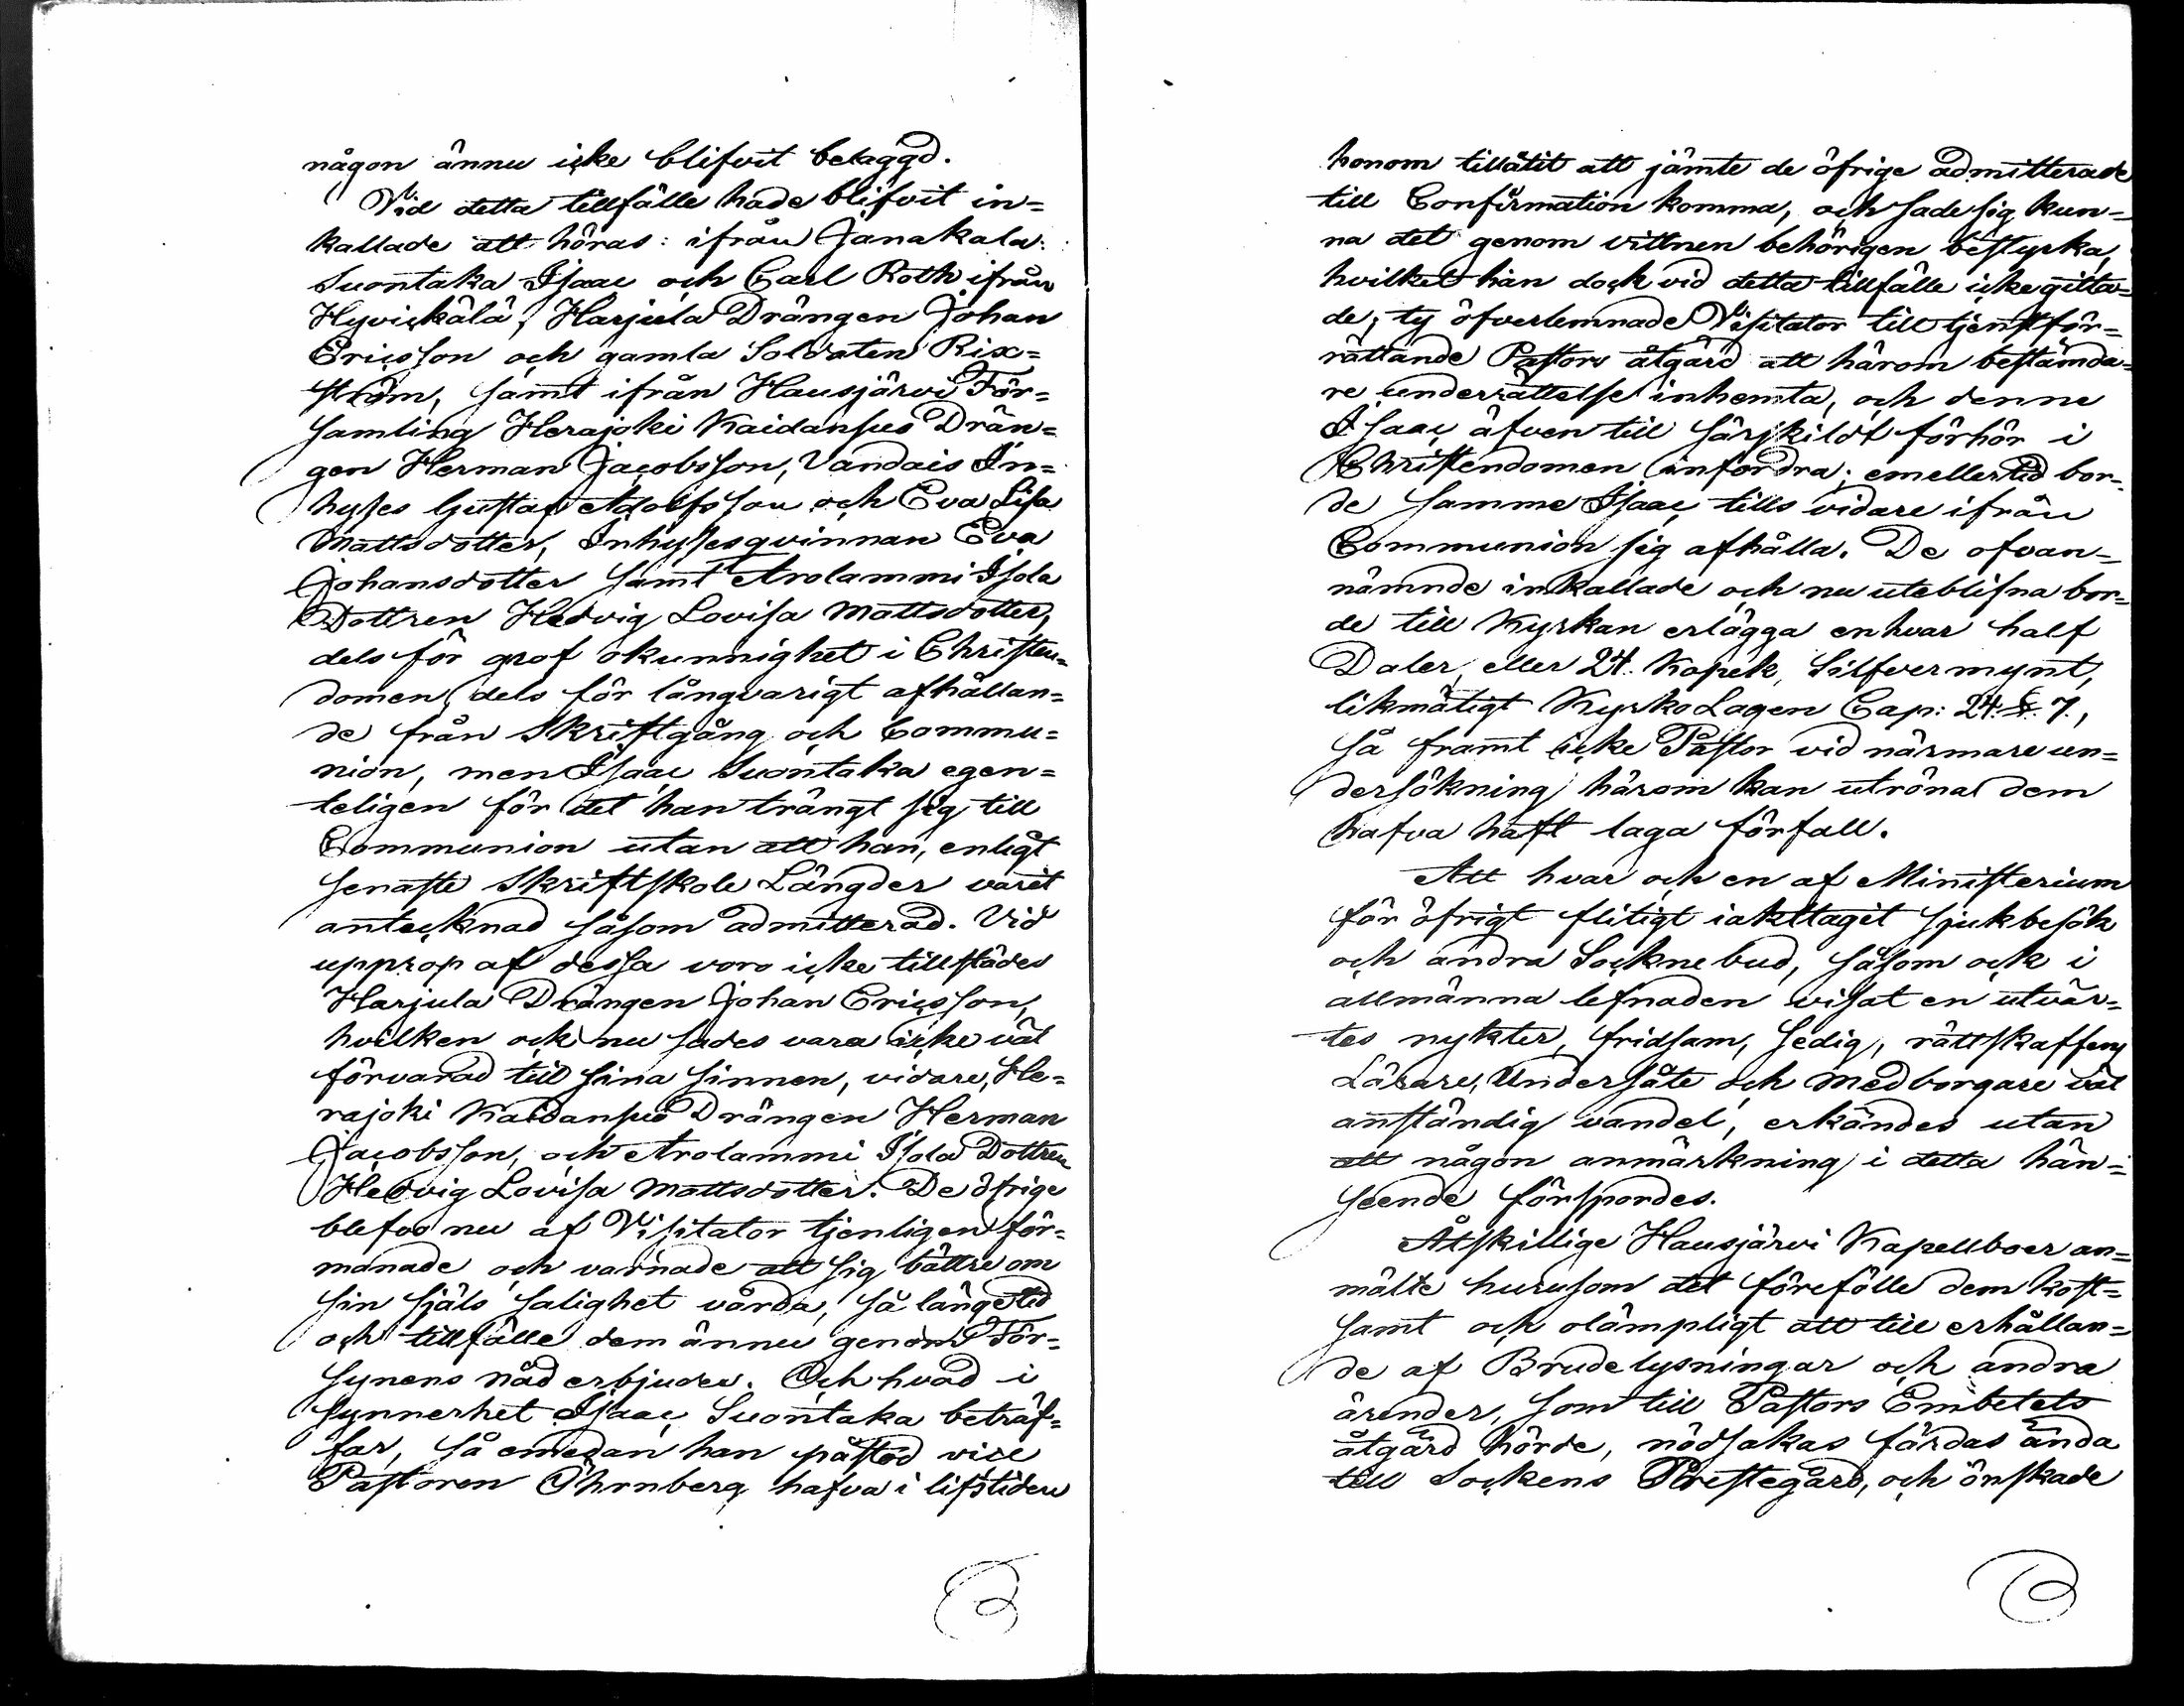 någon ännu icke blifvit belaggd.
Vid detta tillfälle hade blifvit in=
kallade att höras: ifrån Janakala:
Suontaka Isaac och Carl Roth ifrån
Hyvickälä, Harjula Drängen Johan
Ericsson och gamla Soldaten Rix=
ström, samt ifrån Hausjärvi För=
samling Herajoki Kaidansuo Drän=
gen Herman Jacobsson, Vandais In=
hyses Gustaf Adolfsson och Eva Lisa
Mattsdotter, Inhysesqvinnan Eva
Johansdotter samt Arolammi Isola
Dottren Hedvig Lovisa Mattsdotter,
dels för grof okunnighet i Christen=
domen, dels för långvarigt afhållan=
de från Skriftgång och Commu=
nion, men Isaac Suontaka egen=
teligen för det han trängt sig till
Communion utan att han, enligt
senaste Skriftskole Längder varit
antecknad såsom admitterad. Vid
upprop af dessa voro icke tillstädes
Harjula Drängen Johan Ericsson,
hvilken ock nu sades vara icke väl
förvarad till sina sinnen, vidare, He=
rajoki Kaidansuo Drängen Herman
Jacobsson, och Arolammi Isola Dottren
Hedvig Lovisa Mattsdotter. De öfrige
blefvo nu af Visitator tjenligen för=
manade och varnade att sig bättre om
sin själs salighet vårda, så länge tid
och tillfälle dem ännu genom För=
synens nåd erbjudes. Och hvad i
synnerhet Isaac Suontaka beträf=
far, så emedan han påstod vice
Pastoren Öhrnberg hafva i lifstiden
honom tillåtit att jämte de öfrige admitterade
till Confirmation komma, och sade sig kun=
na det genom vittnen behörigen bestyrka,
hvilket han dock vid detta tillfälle icke gitta=
de, ty öfverlemnade Visitator till tjenstför=
rättande Pastors åtgärd att härom bestämda=
re underrättelse inhemta, och denne
Isaac äfven till särskildt förhör i
Christendomen infordra; emellertid bor=
de samme Isaac tills vidare ifrån
Communion sig afhålla. De ofvan=
nämnde inkallade och nu uteblifna bor=
de till Kyrkan erlägga enhvar half
Daler, eller 24. Kopek, Silfvermynt,
likmätigt Kyrko Lagen Cap: 24. §. 7.,
så framt icke Pastor vid närmare un=
dersökning härom kan utröna dem
hafva haft laga förfall.
Att hvar och en af Ministerium
för öfrigt flitigt iakttagit sjukbesök
och andra Socknebud, såsom ock i
allmänna lefnaden visat en utvär=
tes nykter, fridsam, sedig, rättskaffens
Lärare, Undersåte och medborgare väl
anständig vandel, erkändes utan
att någon anmärkning i detta hän=
seende försspordes.
Åtskillige Hausjärvi Kapellboer an=
mälte hurusom det förefölle dem kost=
samt och olämpligt att till erhållan=
de af Brudelysningar och andra
ärender, som till Pastors Embetets
åtgärd hörde, nödsakas färdas ända
till Sockens Prestegård, och önskade